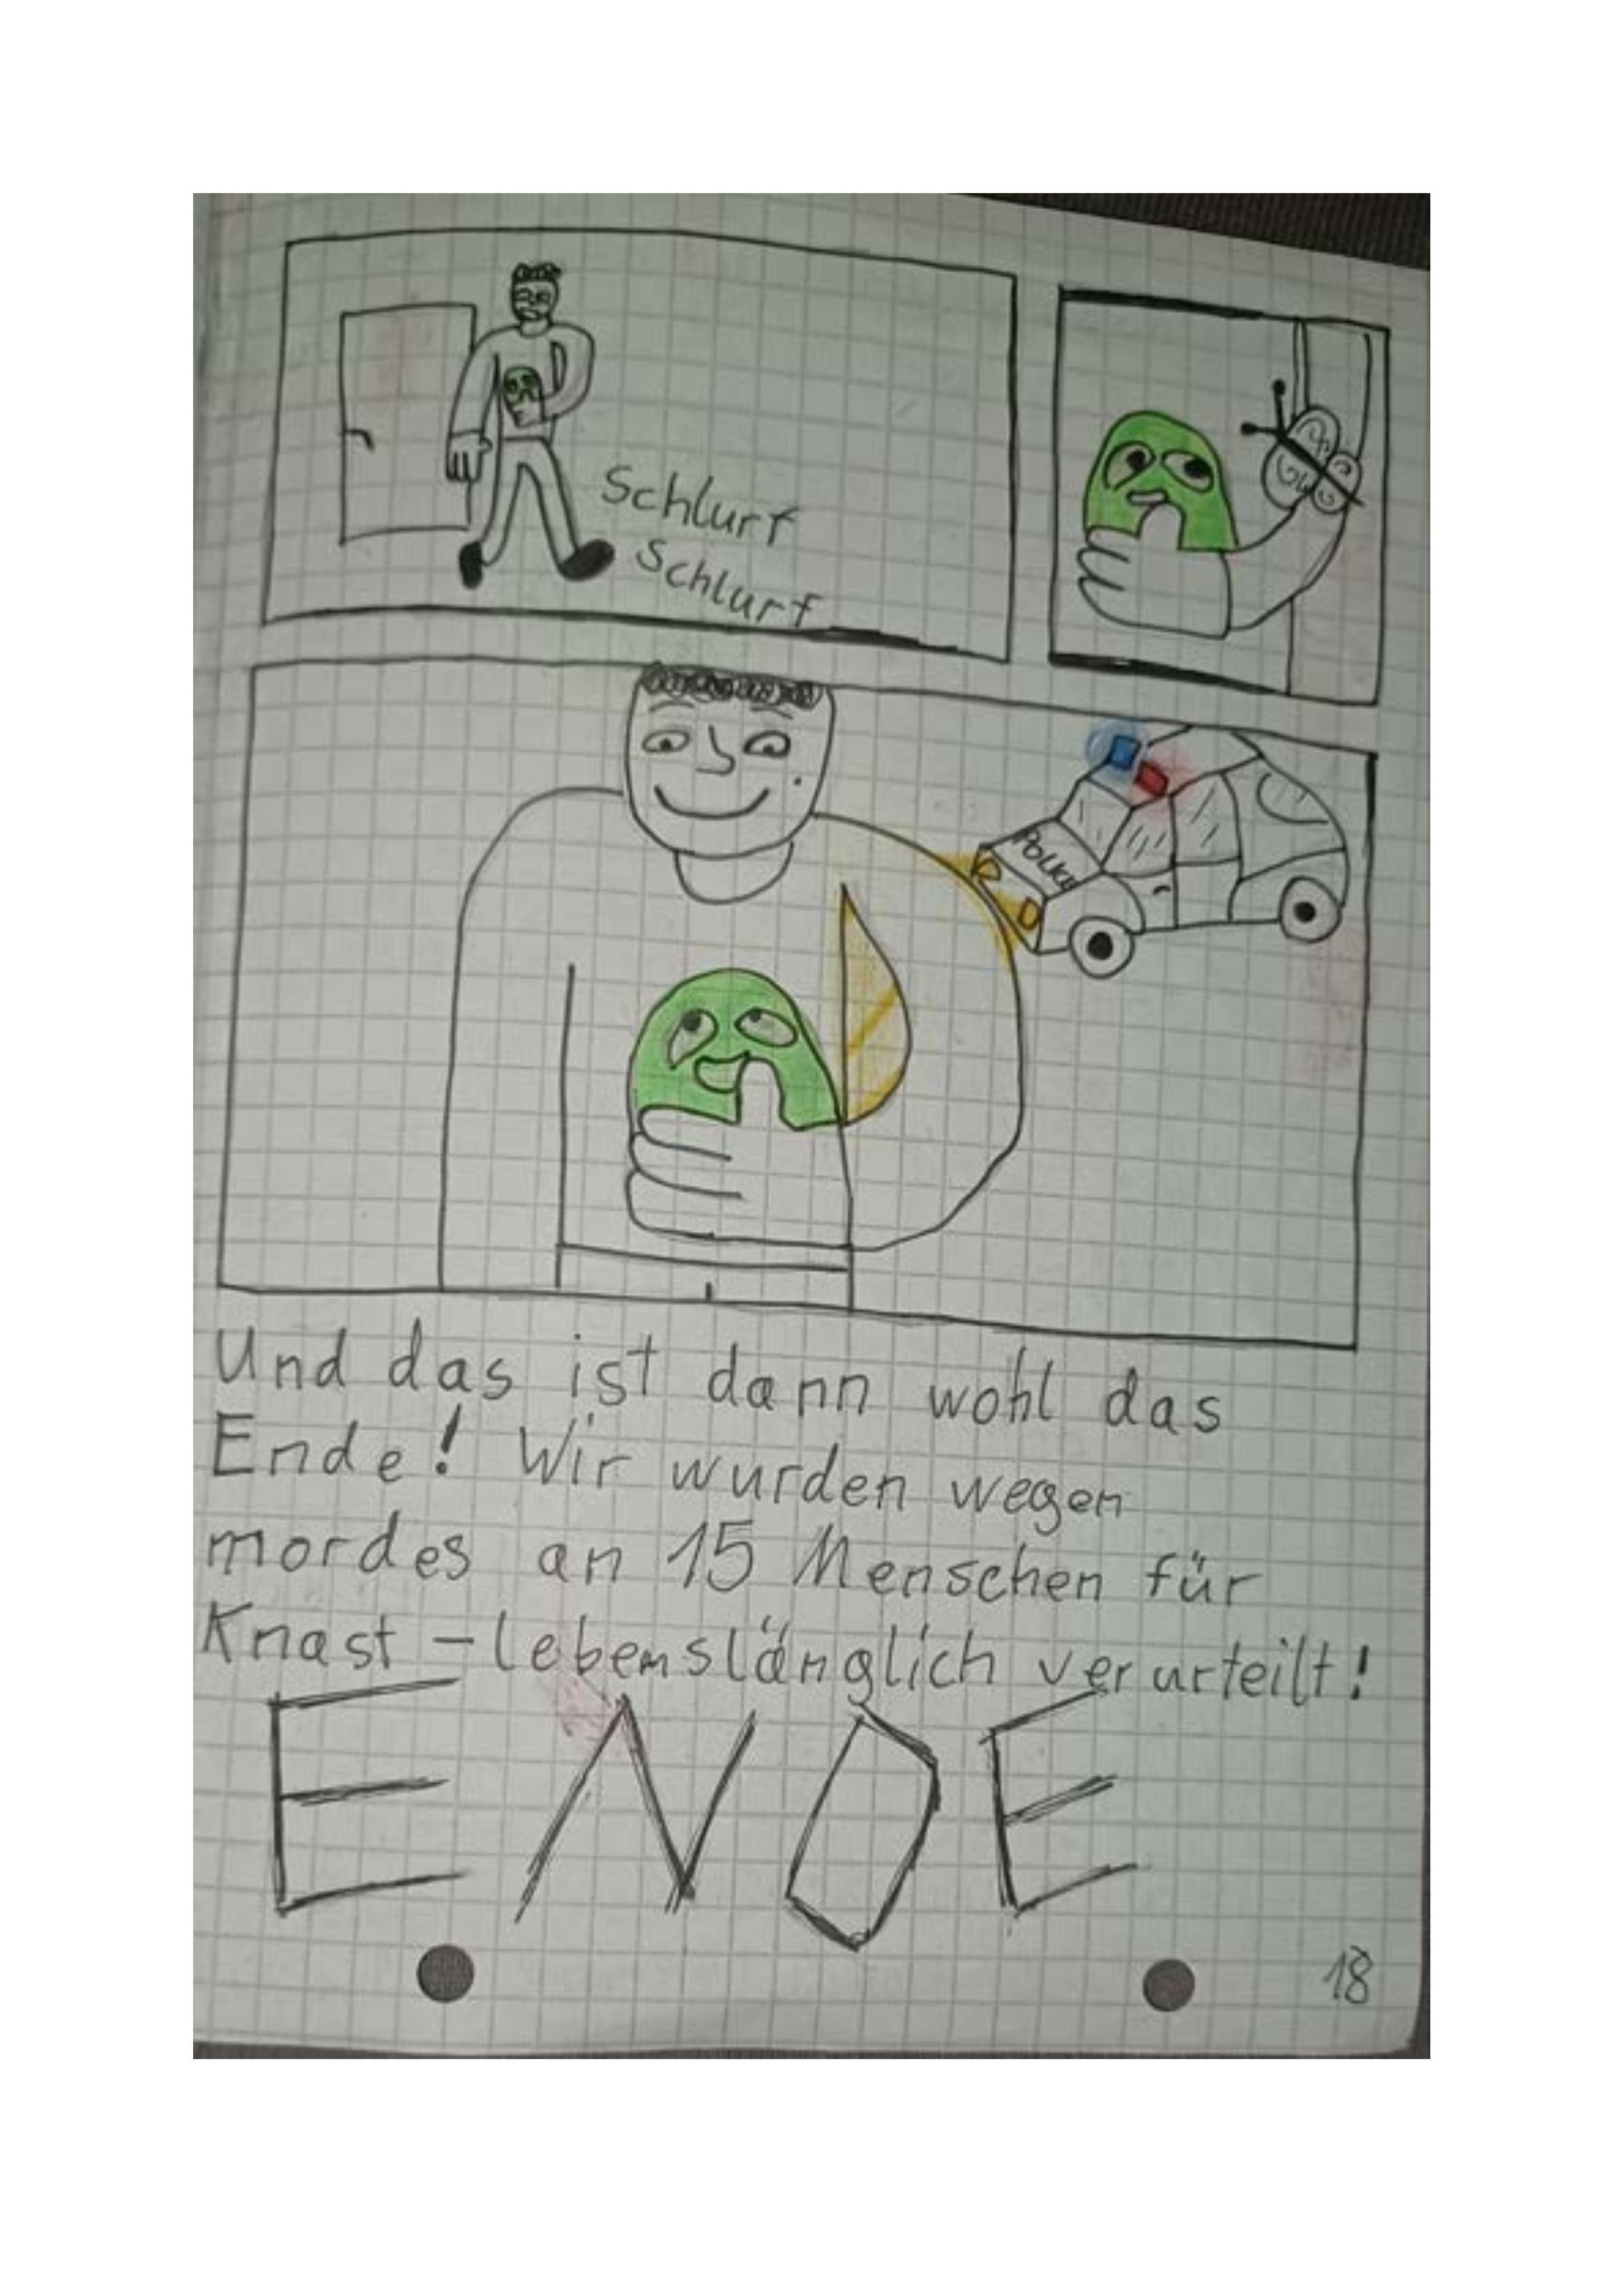 Schlurf
Schlurf
POLIZEI
Und das ist dann wohl das
Ende! Wir wurden wegen
mordes an 15 Menschen für
Knast - lebenslänglich verurteilt!
ENDE
18